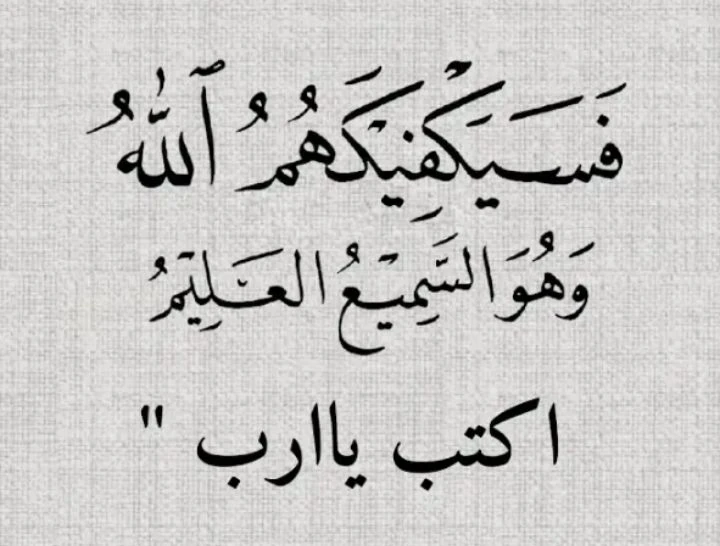 فَسَيَكْفِيْكَهُمُ ٱللّٰهُ
وَهُوَ السَّمِيْعُ الْعَلِيْمُ
اكتب ياارب "